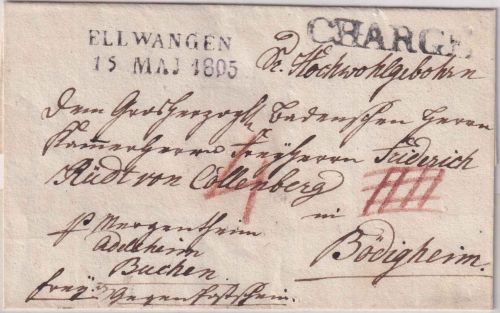 ELLWANGEN
15 MAI 1805
CHARGÉ
Sr. Hochwohlgebohrn
Dem Grosherzogl. Badenschen Herrn
Kammerherrn Freyherrn Friderich
Rüdt von Collenberg
in
Bödigheim.
p Mergentheim
Adelsheim
Buchen
frey
gegen Postschein.